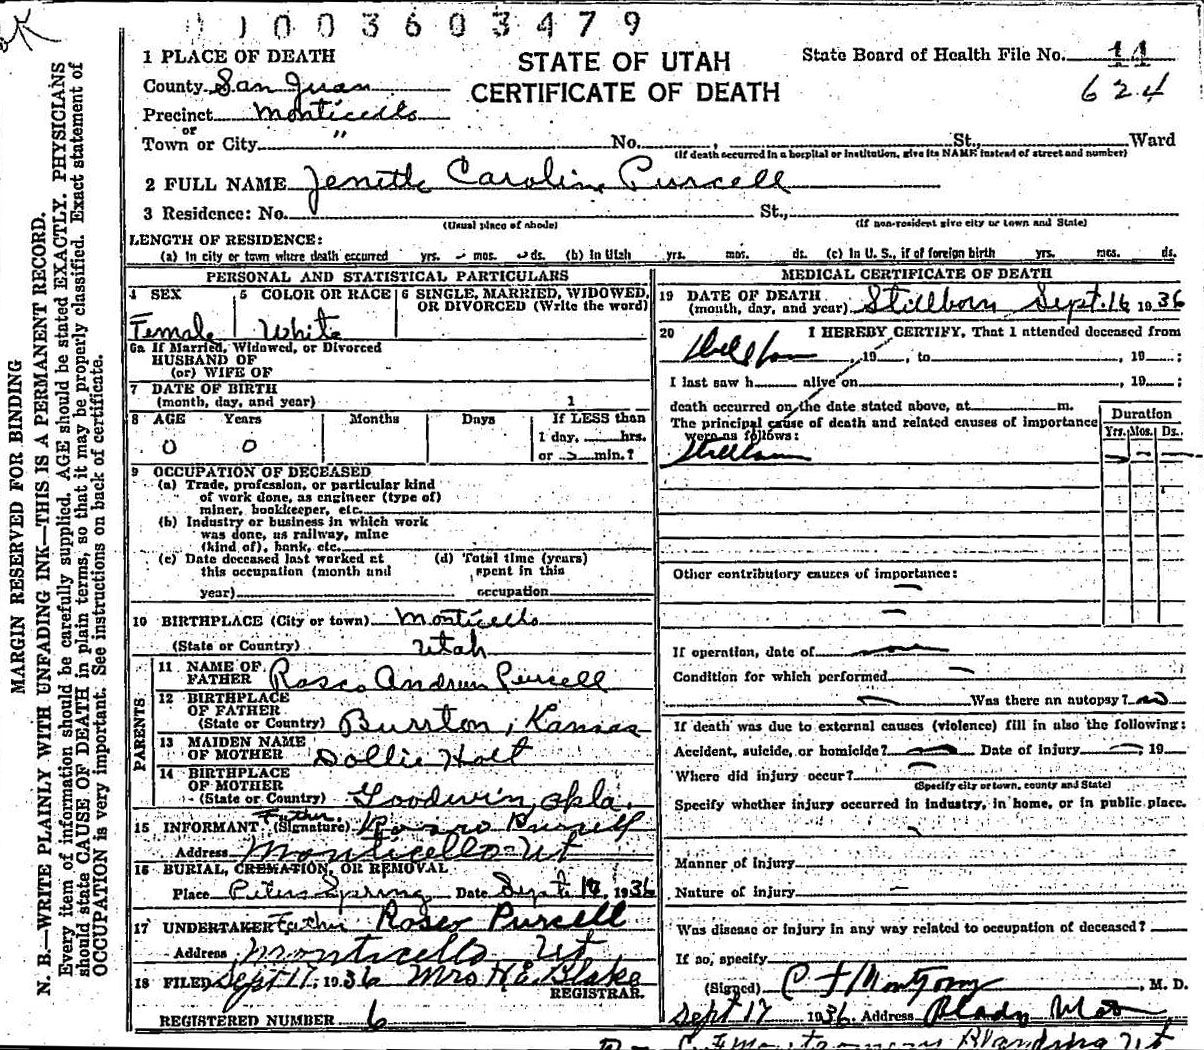 0 1 0 0 3 6 0 3 4 7 9
OK
MARGIN RESERVED FOR BINDING
N. B.—WRITE PLAINLY WITH UNFADING INK—THIS IS A PERMANENT RECORD.
Every item of information should be carefully supplied. AGE should be stated EXACTLY. PHYSICIANS
should state CAUSE OF DEATH in plain terms, so that it may be properly classified. Exact statement of
OCCUPATION is very important. See instructions on back of certificate.
STATE OF UTAH
CERTIFICATE OF DEATH
State Board of Health File No. 14
624
1 PLACE OF DEATH
County San Juan
Precinct Monticello
or
Town or City " No. , St., Ward
(If death occurred in a hospital or institution, give its NAME instead of street and number)
2 FULL NAME Caroline Purcell
3 Residence: No. St.,
(Usual place of abode) (If non-resident give city or town and State)
LENGTH OF RESIDENCE:
(a) In city or town where death occurred yrs. mos. ds. (b) In Utah yrs. mos. ds. (c) In U. S., if of foreign birth yrs. mos. ds.
PERSONAL AND STATISTICAL PARTICULARS
4 SEX 5 COLOR OR RACE 6 SINGLE, MARRIED, WIDOWED,
OR DIVORCED (Write the word)
Female White
6a If Married, Widowed, or Divorced
HUSBAND OF
(or) WIFE OF
7 DATE OF BIRTH
(month, day, and year) 1
8 AGE Years Months Days If LESS than
1 day, hrs.
or min.?
0 0
9 OCCUPATION OF DECEASED
(a) Trade, profession, or particular kind
of work done, as engineer (type of)
miner, bookkeeper, etc.
(b) Industry or business in which work
was done, as railway, mine
(kind of), bank, etc.
(c) Date deceased last worked at (d) Total time (years)
this occupation (month and spent in this
year) occupation
10 BIRTHPLACE (City or town) Monticello
(State or Country) Utah
PARENTS
11 NAME OF
FATHER Rosco Andrew Purcell
12 BIRTHPLACE
OF FATHER
(State or Country) Burrton, Kansas
13 MAIDEN NAME
OF MOTHER Dollie Holt
14 BIRTHPLACE
OF MOTHER
(State or Country) Goodwin, Okla.
15 INFORMANT Father
(Signature) Rosco Purcell
Address Monticello Ut
16 BURIAL, CREMATION, OR REMOVAL
Place Peters Spring Date Sept. , 1936
17 UNDERTAKER Father Rosco Purcell
Address Monticello Ut
18 FILED Sept 17, 1936 Mrs H.E. Blake
REGISTRAR.
REGISTERED NUMBER 6
MEDICAL CERTIFICATE OF DEATH
19 DATE OF DEATH
(month, day, and year) Stillborn Sept. 16 1936
20 I HEREBY CERTIFY, That I attended deceased from
Stillborn , 19 , to , 19 ;
I last saw h alive on , 19 ;
death occurred on the date stated above, at m.
The principal cause of death and related causes of importance
were as follows:
Duration
Yrs. Mos. Ds.
Stillborn
Other contributory causes of importance:
If operation, date of
Condition for which performed
Was there an autopsy? no
If death was due to external causes (violence) fill in also the following:
Accident, suicide, or homicide? Date of injury 19
Where did injury occur?
(Specify city or town, county and State)
Specify whether injury occurred in industry, in home, or in public place.
Manner of injury
Nature of injury
Was disease or injury in any way related to occupation of deceased?
If so, specify
(Signed) , M. D.
Sept 17 1936 Address
Blanding Ut